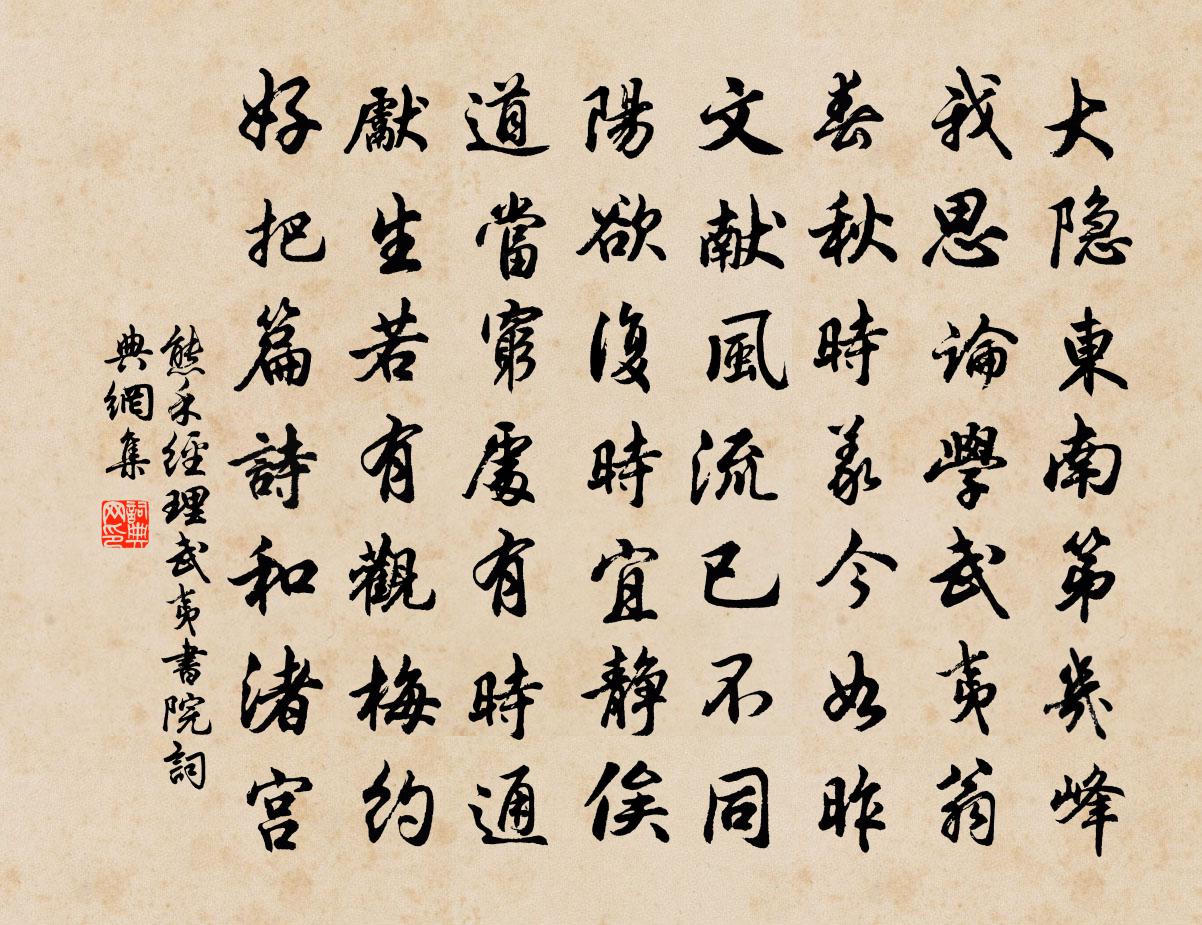 大隐東南第幾峰
我思論學武夷翁
春秋時義今如昨
文献風流已不同
陽欲復時宜静俟
道當窮處有時通
獻生若有觀梅約
好把篇詩和渚宫
熊禾經理武夷書院詞
典網集
詞典网印